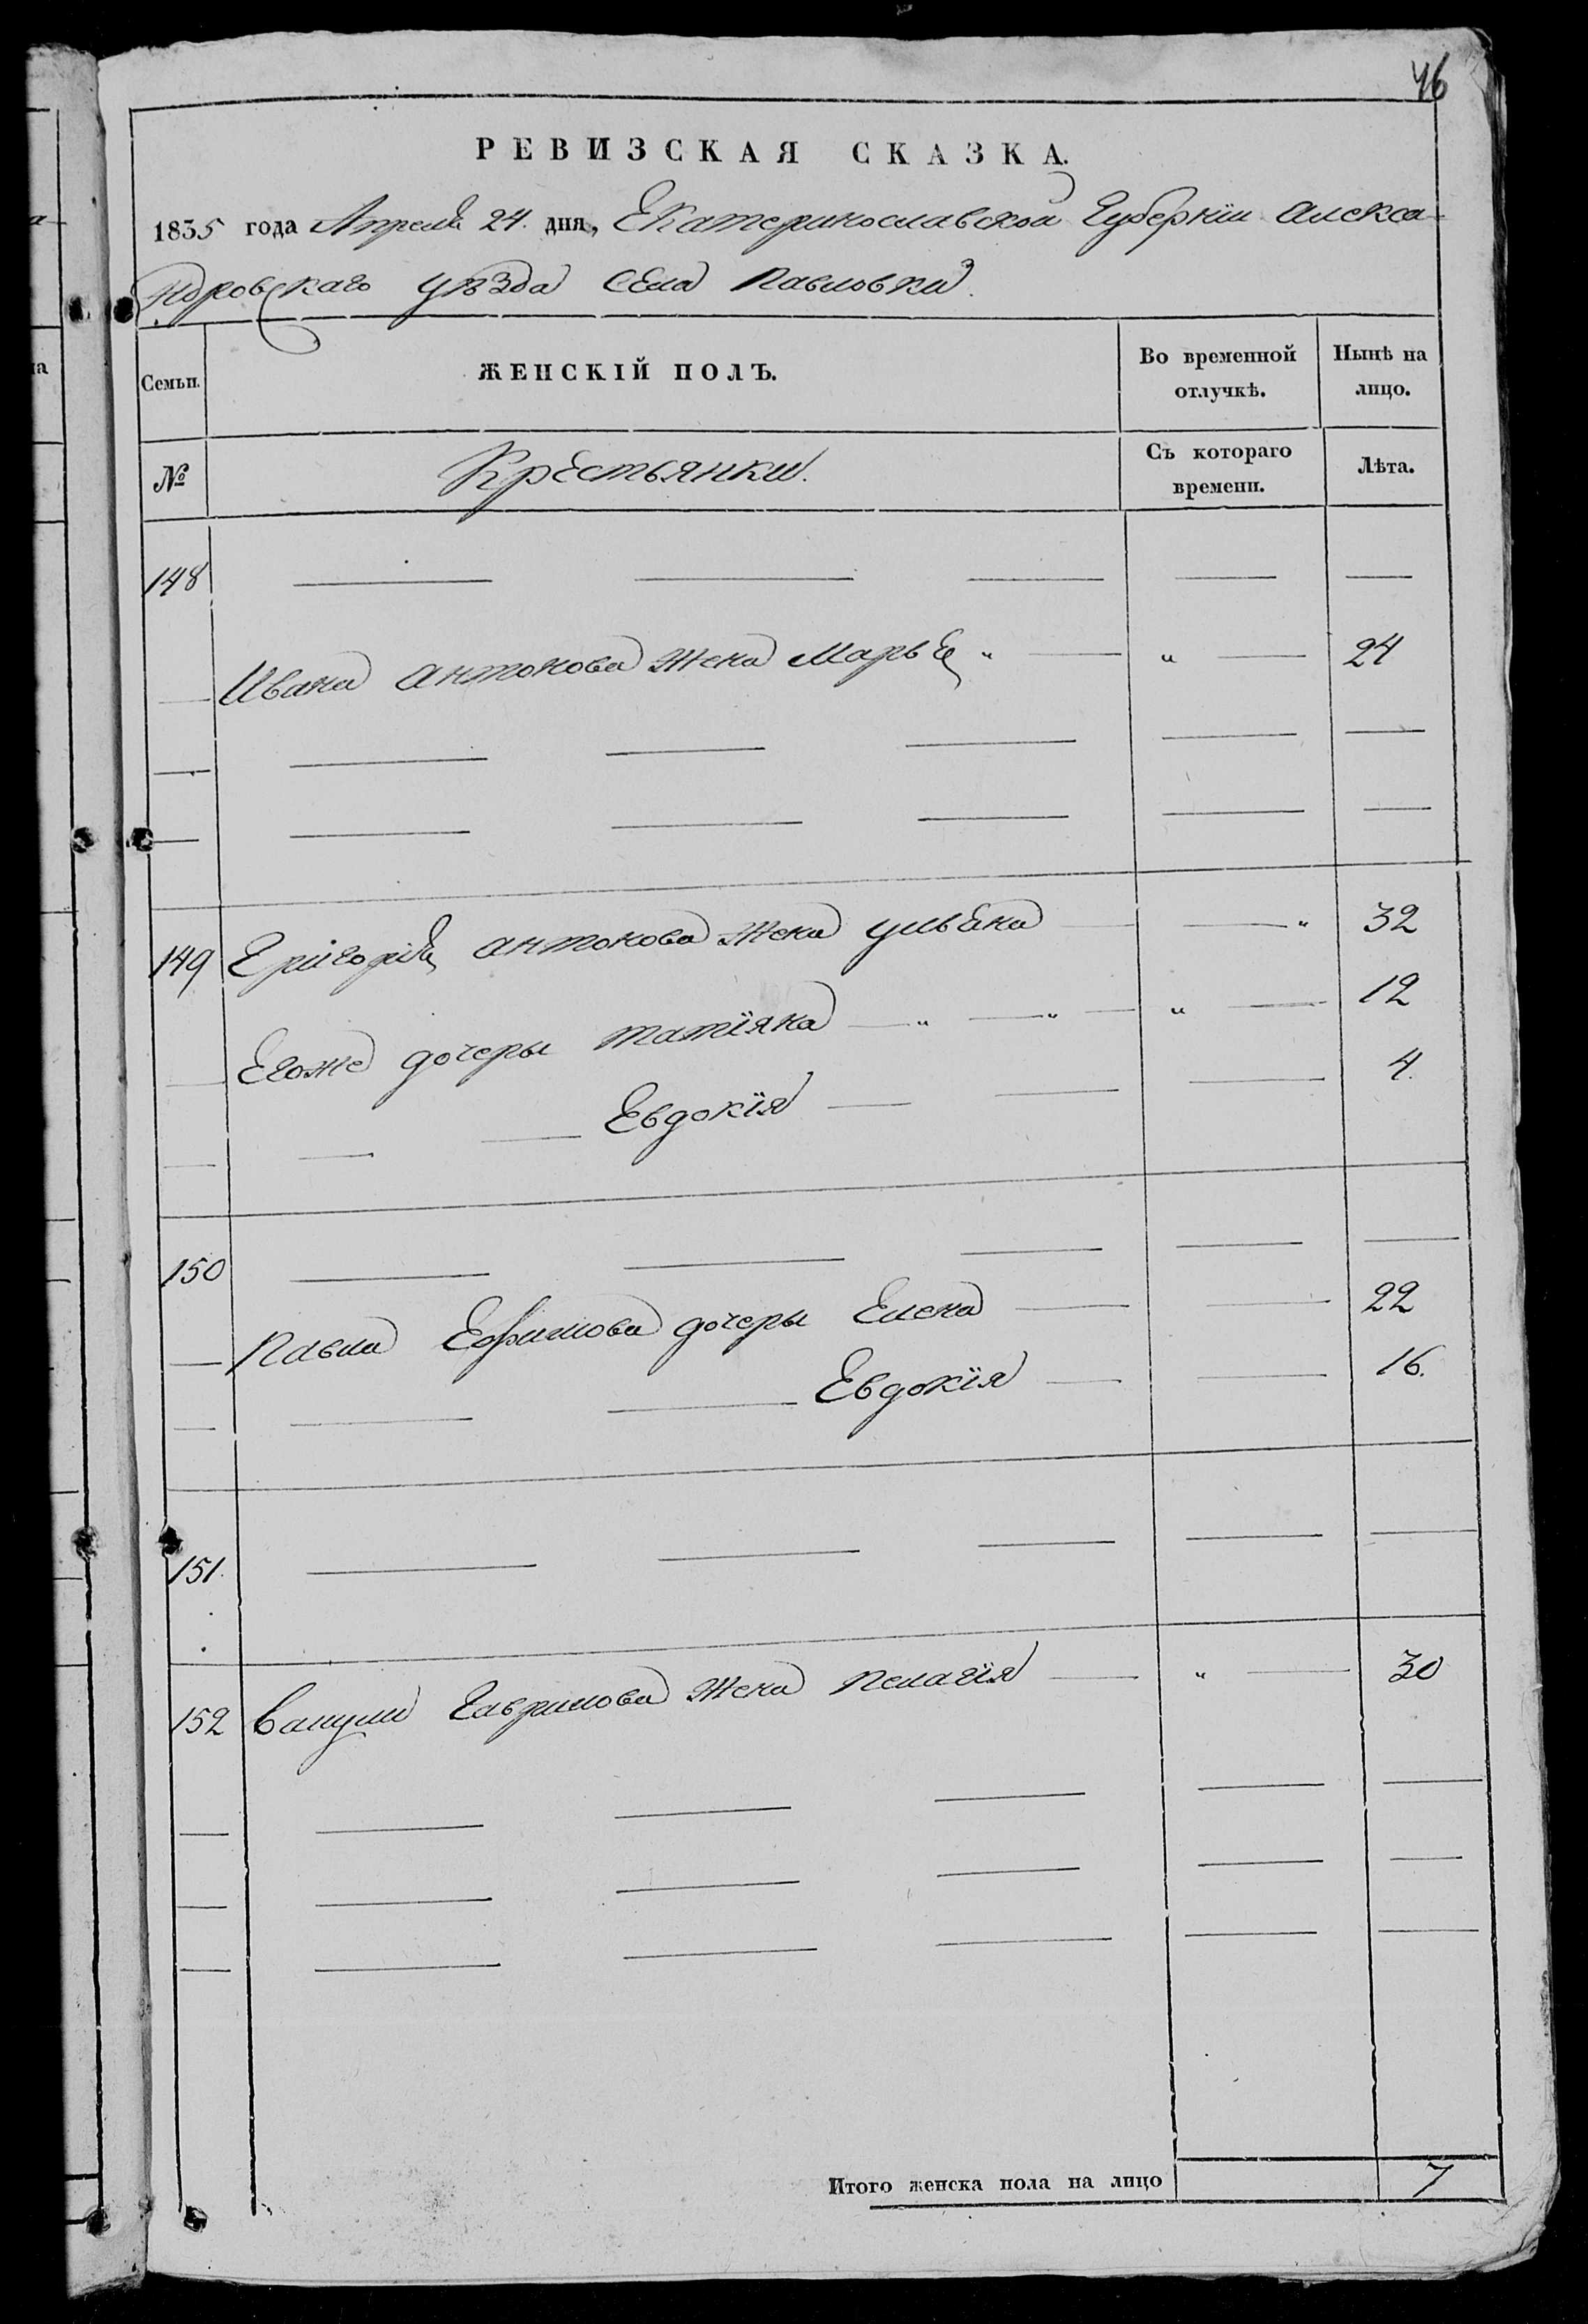 46
РЕВИЗСКАЯ СКАЗКА.
1835 года Апреля 24. дня, Екатеринославской Губернїи Алекса-
ндровскаго уѣзда Села Павловки.
Семьи. ЖЕНСКІЙ ПОЛЪ. Во временной отлучкѣ. Нынѣ на лицо.
№ Крестьянки. Съ котораго времени. Лѣта.
148
Ивана Антонова жена Марья 24
149 Григорія Антонова жена Ульяна 32
Егоже дочеры татїяна 12
Евдокїя 4.
150
Павла Ефимова дочеры Елена 22
Евдокїя 16.
151.
152 Гаврилова жена Пелагїя 30
Итого женска пола на лицо 7